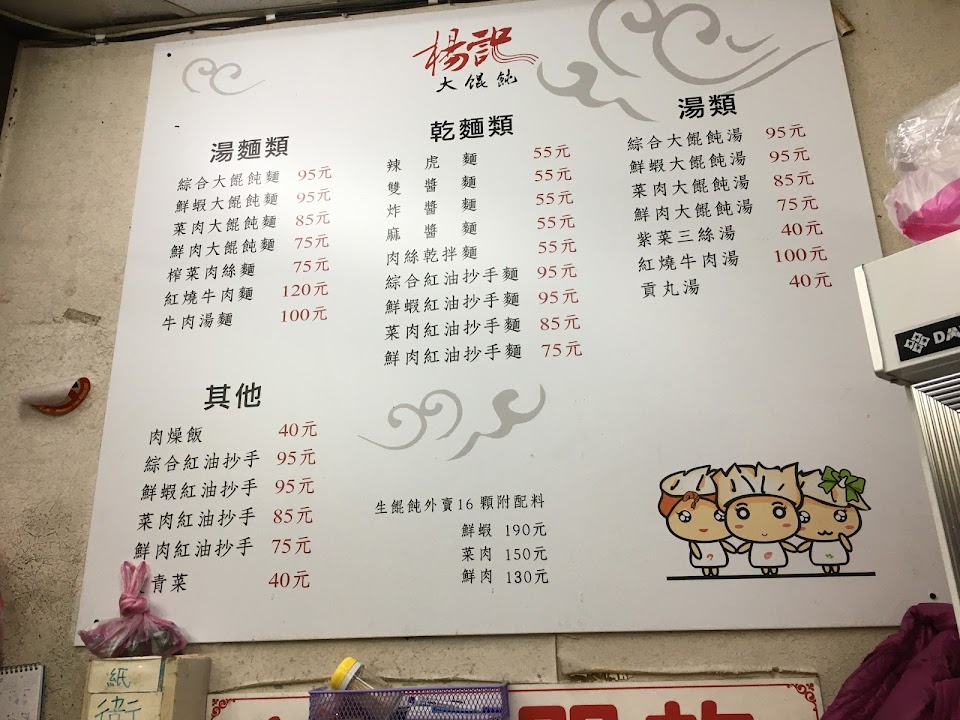 楊記
大餛飩
湯麵類
綜合大餛飩麵 95元
鮮蝦大餛飩麵 95元
菜肉大餛飩麵 85元
鮮肉大餛飩麵 75元
榨菜肉絲麵 75元
紅燒牛肉麵 120元
牛肉湯麵 100元
乾麵類
辣虎麵 55元
雙醬麵 55元
炸醬麵 55元
麻醬麵 55元
肉絲乾拌麵 55元
綜合紅油抄手麵 95元
鮮蝦紅油抄手麵 95元
菜肉紅油抄手麵 85元
鮮肉紅油抄手麵 75元
湯類
綜合大餛飩湯 95元
鮮蝦大餛飩湯 95元
菜肉大餛飩湯 85元
鮮肉大餛飩湯 75元
紫菜三絲湯 40元
紅燒牛肉湯 100元
貢丸湯 40元
其他
肉燥飯 40元
綜合紅油抄手 95元
鮮蝦紅油抄手 95元
菜肉紅油抄手 85元
鮮肉紅油抄手 75元
青菜 40元
生餛飩外賣16顆附配料
鮮蝦 190元
菜肉 150元
鮮肉 130元
紙